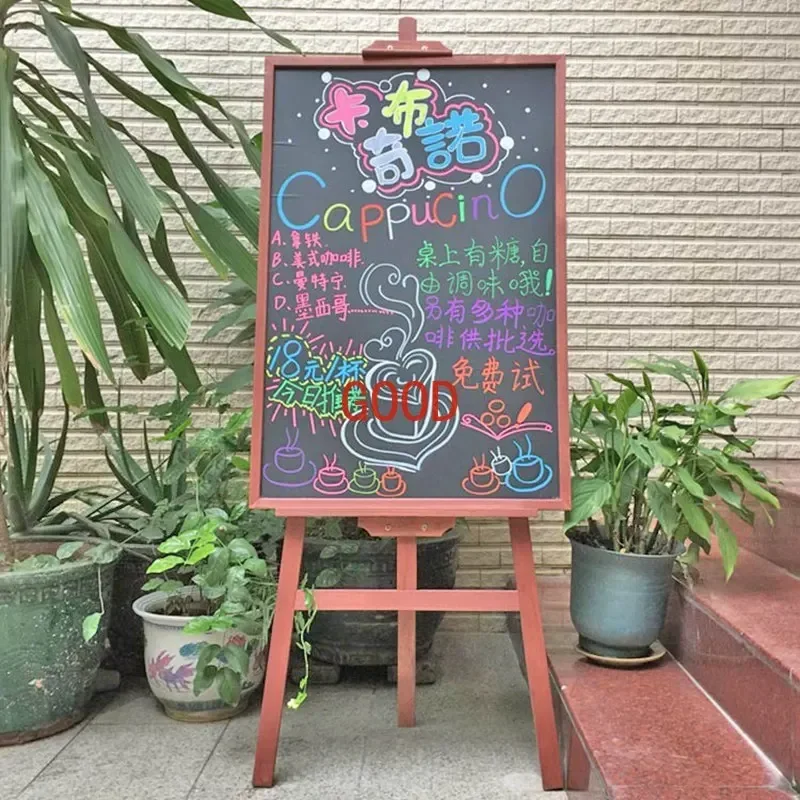 卡布
奇諾
CappucinO
A.拿铁
B.美式咖啡
C.曼特宁
D.墨西哥
桌上有糖,自
由调味哦!
另有多种咖
啡供挑选。
18元/1杯
今日推荐
免费试
GOOD